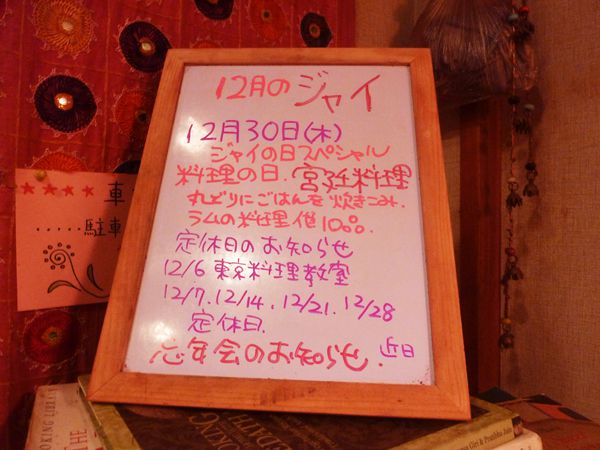 12月のジャイ
12月30日(木)
ジャイの日スペシャル
料理の日.宮廷料理
丸どりにごはんを炊きこみ.
ラムの料理 他1000.
定休日のお知らせ
12/6 東京料理教室
12/7.12/14.12/21.12/28
定休日.
忘年会のお知らせ. 近日
★★★★ 車
駐車